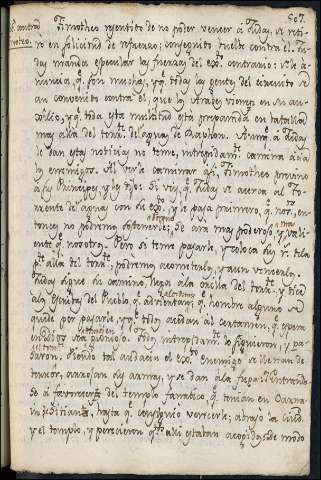 507.
contra
moteo.
Timotheo resentido de no poder vencer a Judas, se reti-
ro en solicitud de refuerzo; conseguido buelve contra el. Ju-
das manda especular las fuerzas del exto. contrario: se le a-
nuncia, q. son muchas, y q. todas las gentes del circuito se
an convenido contra el, que los Arabes vienen en su au-
xilio, y q. toda esta multitud està preparada en batalla
mas allà del torrte. de aguas de Raphon. Aunq. a Judas
le dan estas noticias no teme, intrepidamte. camina àcia
los enemigos. Al verle caminar asi, Timotheo previno
à sus Principes, y les dijo: Si veis, q. Judas se acerca al to-
rrente de aguas con su exto., y le pasa primero, q. nos, en-
tonces no podremos sostenerle; Se arà mas poderoso, y mas vali-
ente q. nosotros. Pero si teme pasarle, y coloca sus rs.
allà del torrte. podremos acometerlo, y aun vencerlo.
Judas sigue su camino, llega à la orilla del torrte. y dice
a los Escribas del Pueblo, q. adviertan, q. hombre alguno se
quede por pasarle, y q. todos acudan al certamen, q. espera
Todos intrepidamte. le siguieron, y pa-
saron. Viendo tal audacia el exto. enemigo se llenan de
terror, arrojan sus armas, y se dan à la fuga: entrando-
se à favorecerse del templo fanatico, q. tenian en Carna-
in hasta q. consiguio vencerle; abrasò la Ciud.
y el templo, y perecieron qtos. alli estaban acogidos, de modo